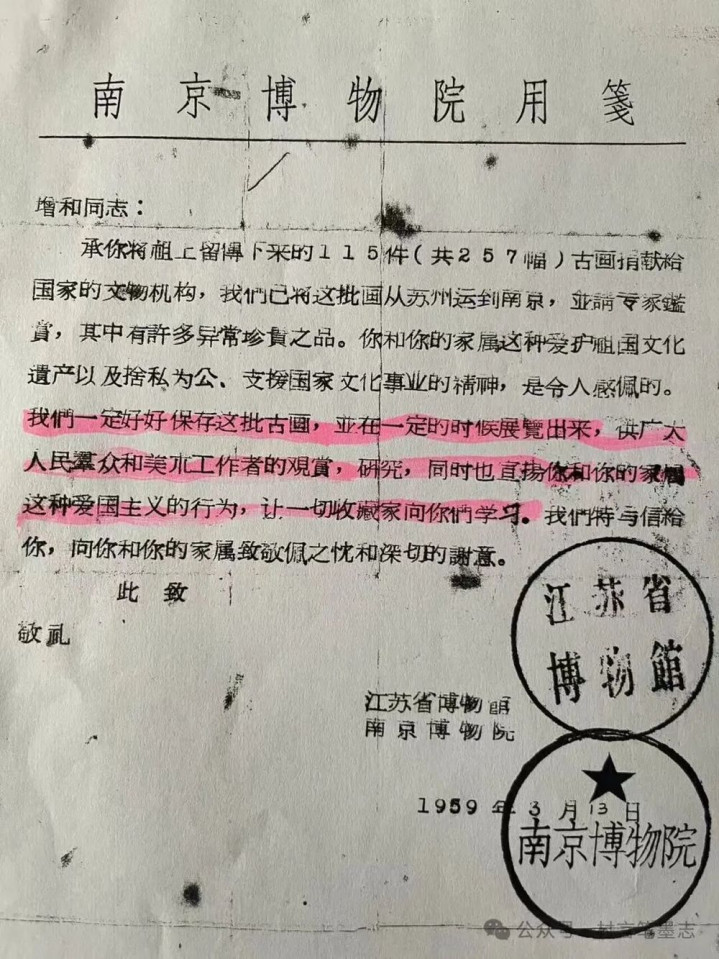 南京博物院用箋
增和同志：
承你将祖上留傳下来的115件(共257幅)古画捐献給
国家的文物机构，我們已将这批画从苏州运到南京，並請专家鑑
賞，其中有許多异常珍貴之品。你和你的家属这种爱护祖国文化
遺产以及捨私为公、支援国家文化事业的精神，是令人感佩的。
我們一定好好保存这批古画，並在一定的时候展覽出来，供广大
人民羣众和美朮工作者的观賞，研究，同时也宣揚你和你的家属
这种爱国主义的行为，让一切收藏家向你們学习。我們特与信給
你，向你和你的家属致敬佩之忱和深切的謝意。
此致
敬礼
江苏省博物館
南京博物院
1959年3月13日
江苏省
博物館
南京博物院
公众号
笔墨志